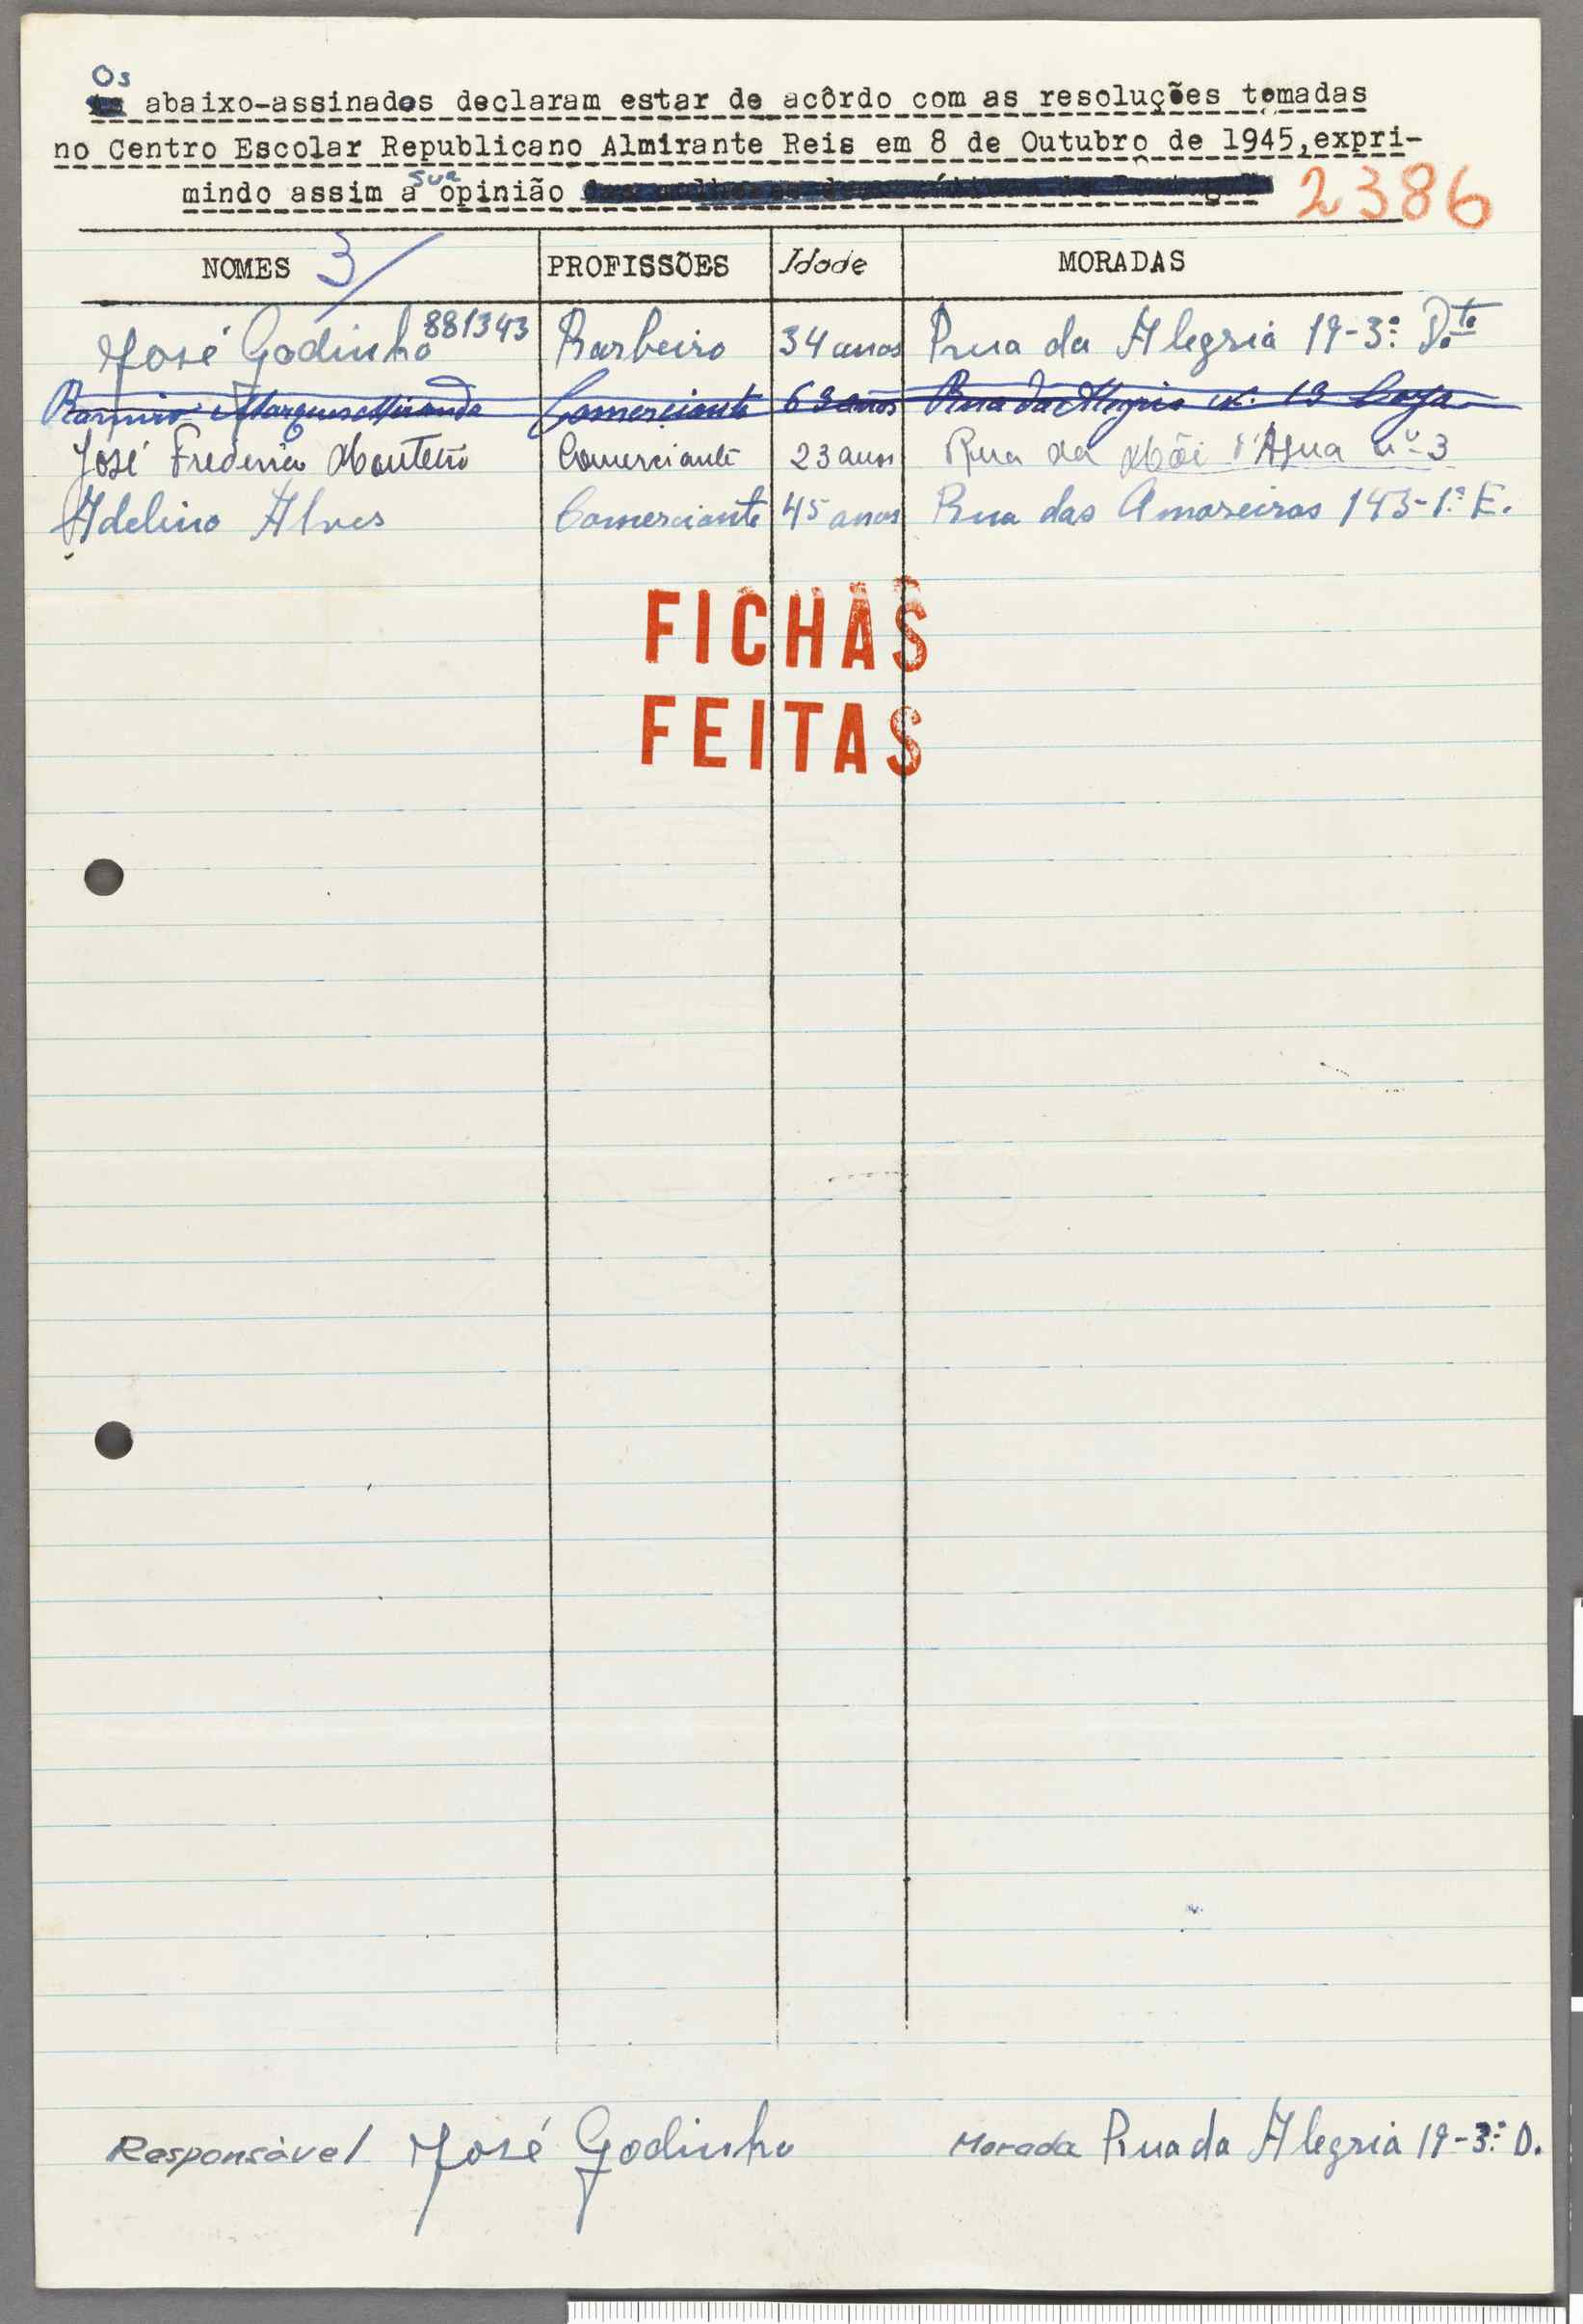 Os
abaixo-assinados declaram estar de acôrdo com as resoluções tomadas
no Centro Escolar Republicano Almirante Reis em 8 de Outubro de 1945, expri-
mindo assim a sua opinião
2386
NOMES 3/ PROFISSÕES Idade MORADAS
José Godinho 881343 Barbeiro 34 anos Rua da Alegria 19-3.º D.to
Ramiro Marques Miranda Comerciante 63 anos Rua da Alegria n. 19 Loja
José Frederico Monteiro Comerciante 23 anos Rua da Mãi d'Agua nº 3
Adelino Alves Comerciante 45 anos Rua das Amoreiras 143-1.º E.
FICHAS
FEITAS
Responsável José Godinho Morada Rua da Alegria 19-3.º D.